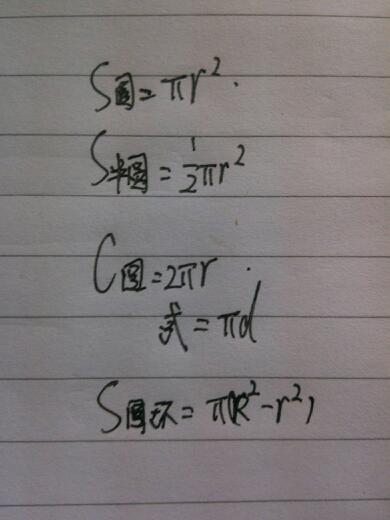 S圆=πr².
S半圆=½πr²
C圆=2πr.
或=πd
S圆环=π(R²-r²)